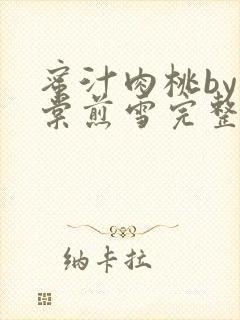 蜜汁肉桃by
棠煎雪完整
纳卡拉